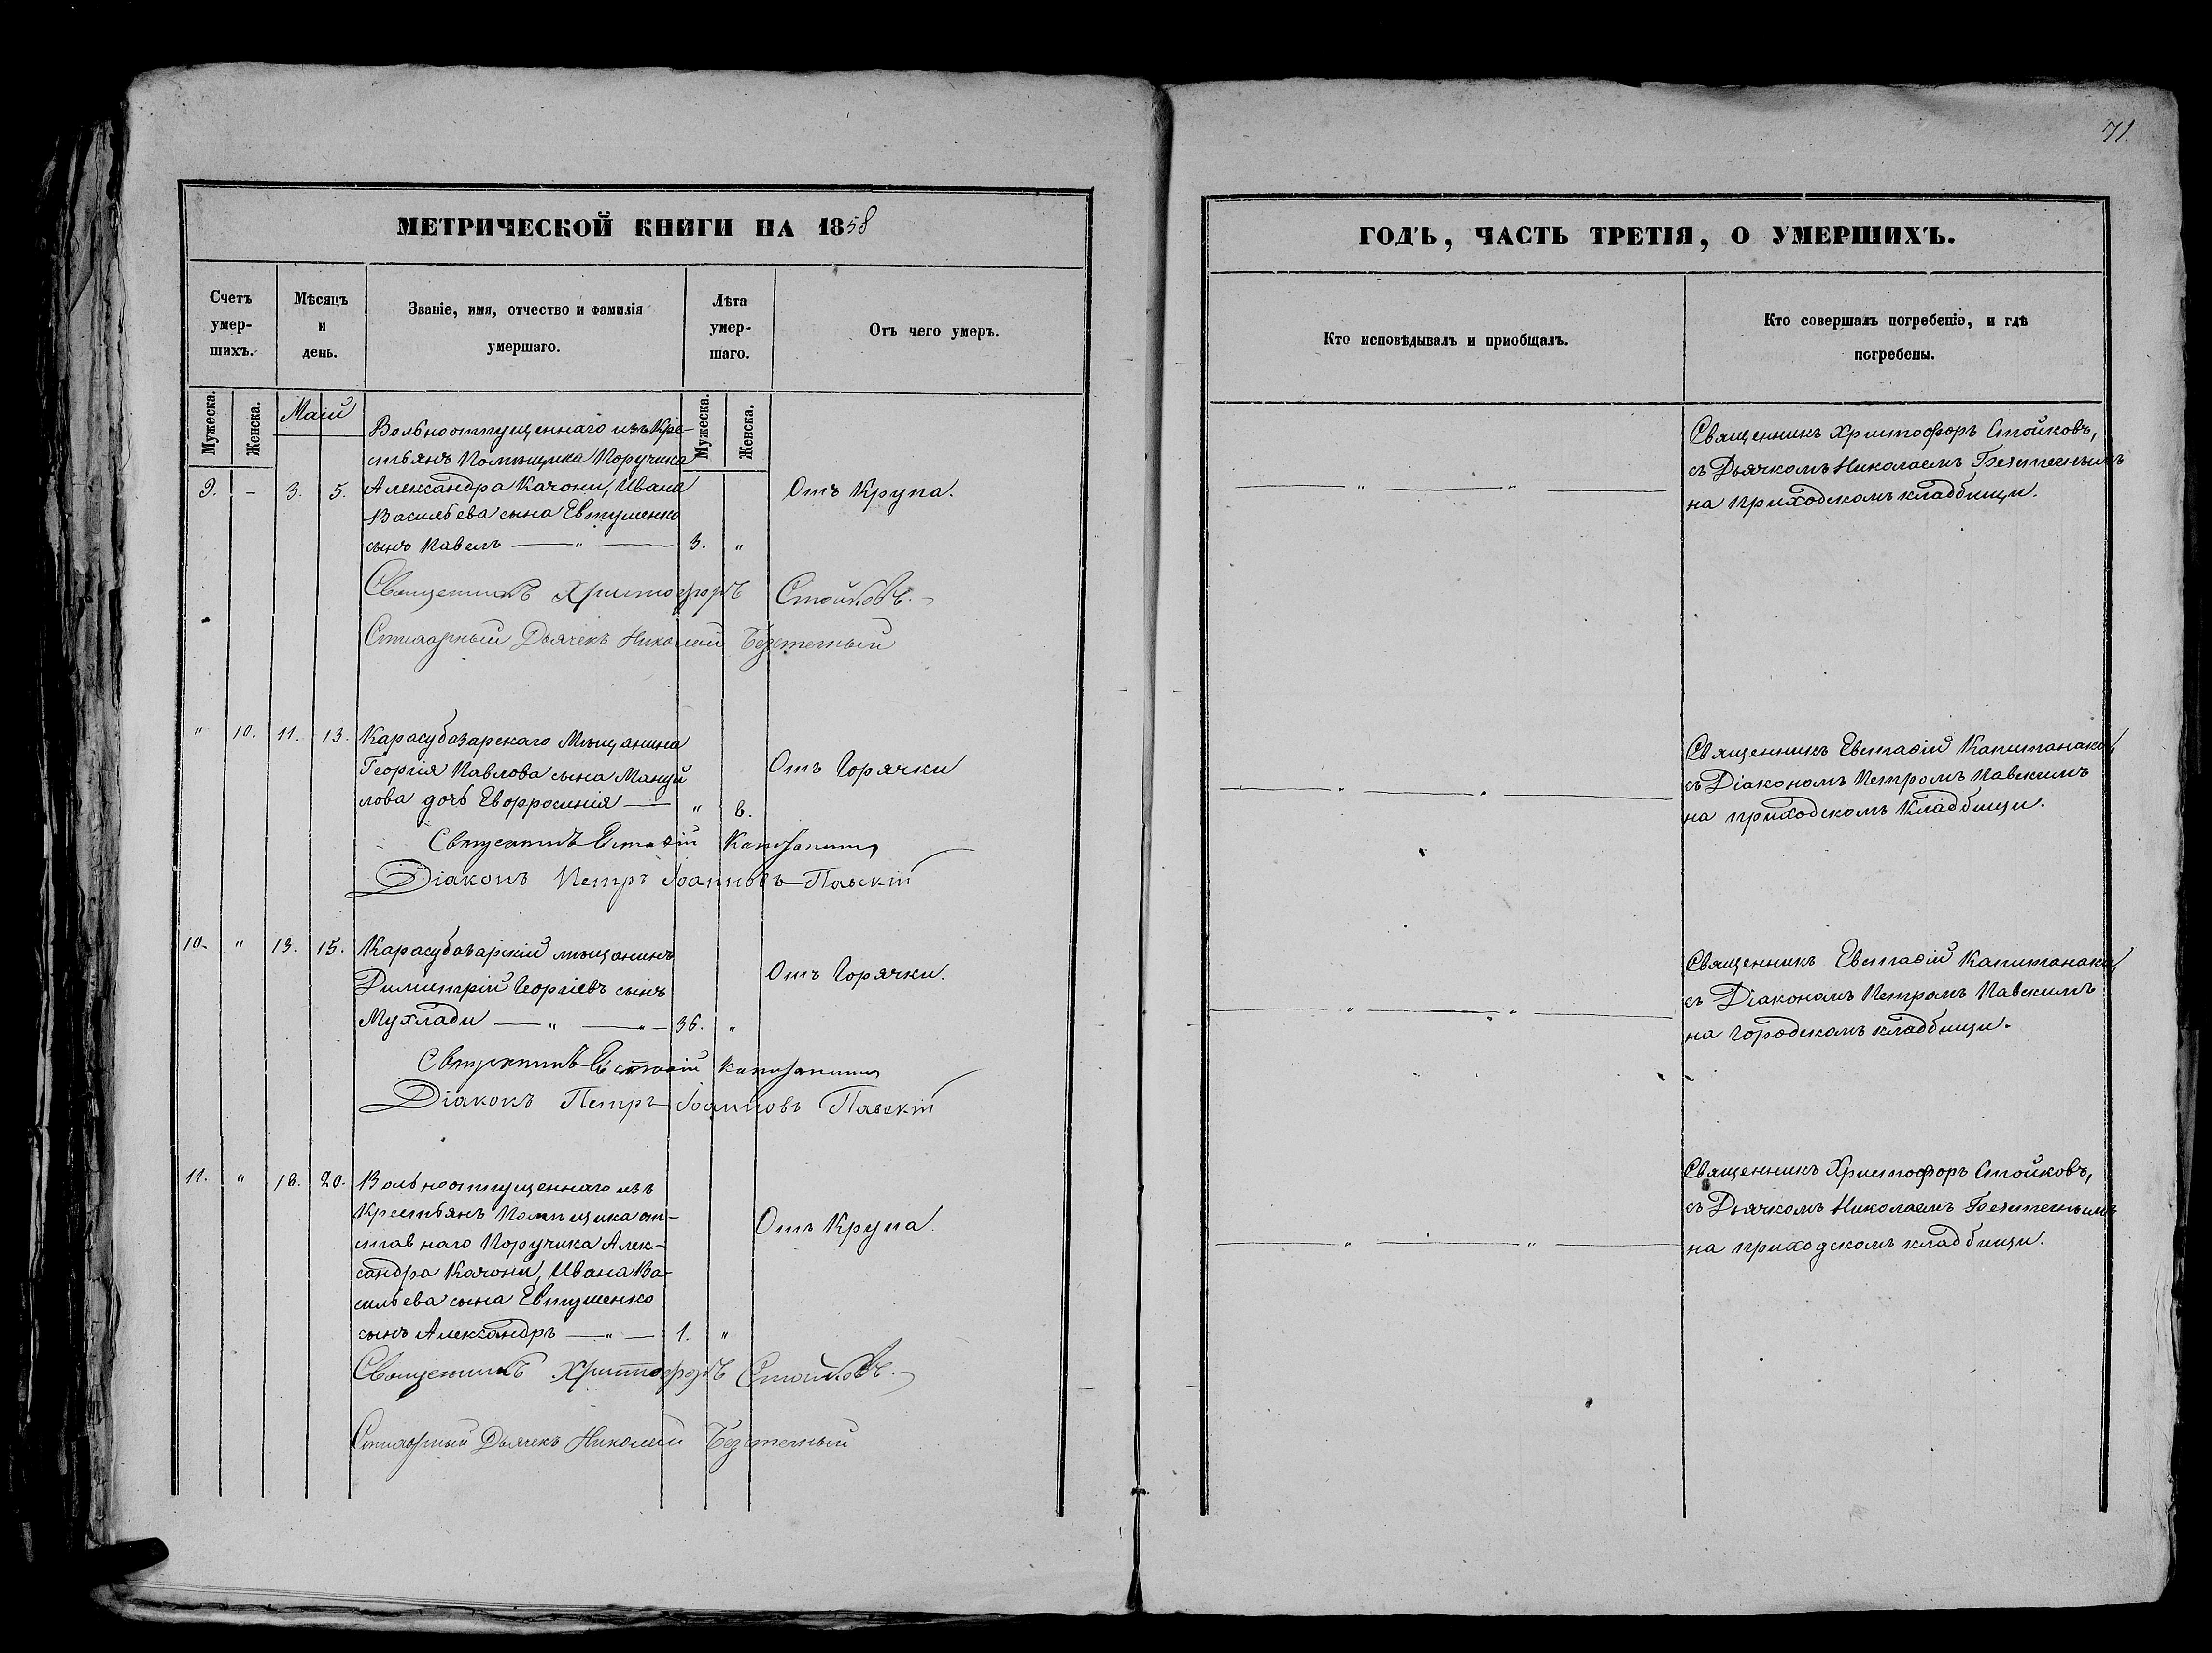 71.
МЕТРИЧЕСКОЙ КНИГИ НА 1858
Счетъ умер-шихъ.
Мѣсяцъ и день.
Званіе, имя, отчество и фамилія умершаго.
Лѣта умер-шаго.
Отъ чего умеръ.
Мужеска.
Женска.
Маій
Мужеска.
Женска.
Вольноотпущеннаго изъ Кре-
стьянъ Помѣщика Поручика
9. - 3. 5. Александра Качони, Ивана Отъ Крупа.
Васильева сына Евтушенко
сынъ Павелъ — " — 3. "
Священникъ Христофоръ Стойковъ.
Стихарный Дьячекъ Николай Безтечный
" 10. 11. 13. Карасубазарскаго Мѣщанина
Георгія Павлова сына Мануй Отъ Горячки
лова дочь Евфросинія — " 6.
Священникъ Евстафій
Діаконъ Петръ Іоанновъ Павскій
10. " 13. 15. Карасубазарскій мѣщанинъ
Димитрій Георгіевъ сынъ Отъ Горячки.
Мухлади — " — " — 36. "
Священникъ Евстафій
Діаконъ Петръ Іоанновъ Павскій
11. " 18. 20. Вольноотпущеннаго изъ
Крестьянъ Помѣщика от-
ставнаго Поручика Алек- Отъ Крупа.
сандра Качони, Ивана Ва-
сильева сына Евтушенко
сынъ Александръ — " — 1. "
Священникъ Христофоръ Стойковъ.
Стихарный Дьячекъ Николай Безтечный
ГОДЪ, ЧАСТЬ ТРЕТІЯ, О УМЕРШИХЪ.
Кто исповѣдывалъ и приобщалъ.
Кто совершалъ погребеніе, и гдѣ
погребены.
Священникъ Христофоръ Стойковъ,
— " — " — съ Дьячкомъ Николаемъ Безтечнымъ
на приходскомъ кладбищи.
Священникъ Евстафій Капитанаки,
— " — " — съ Діакономъ Петромъ Павскимъ
на приходскомъ Кладбищи.
Священникъ Евстафій Капитанаки,
— " — " — съ Діакономъ Петромъ Павскимъ
на городскомъ кладбищи.
Священникъ Христофоръ Стойковъ,
съ Дьячкомъ Николаемъ Безтечнымъ
— " — " — на приходскомъ кладбищи.